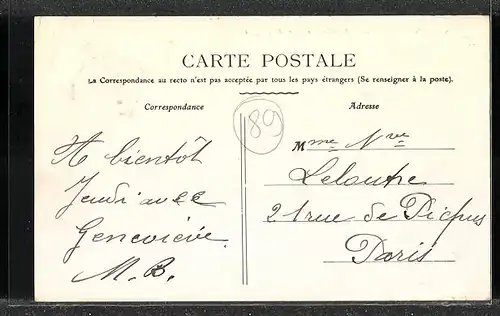 CARTE POSTALE
La Correspondance au recto n'est pas acceptée par tous les pays étrangers (Se renseigner à la poste).
Correspondance
A bientôt
Jeudi avec
Geneviève
M. B.
89
Adresse
Mme Nve
Lelautre
21 rue de Picpus
Paris